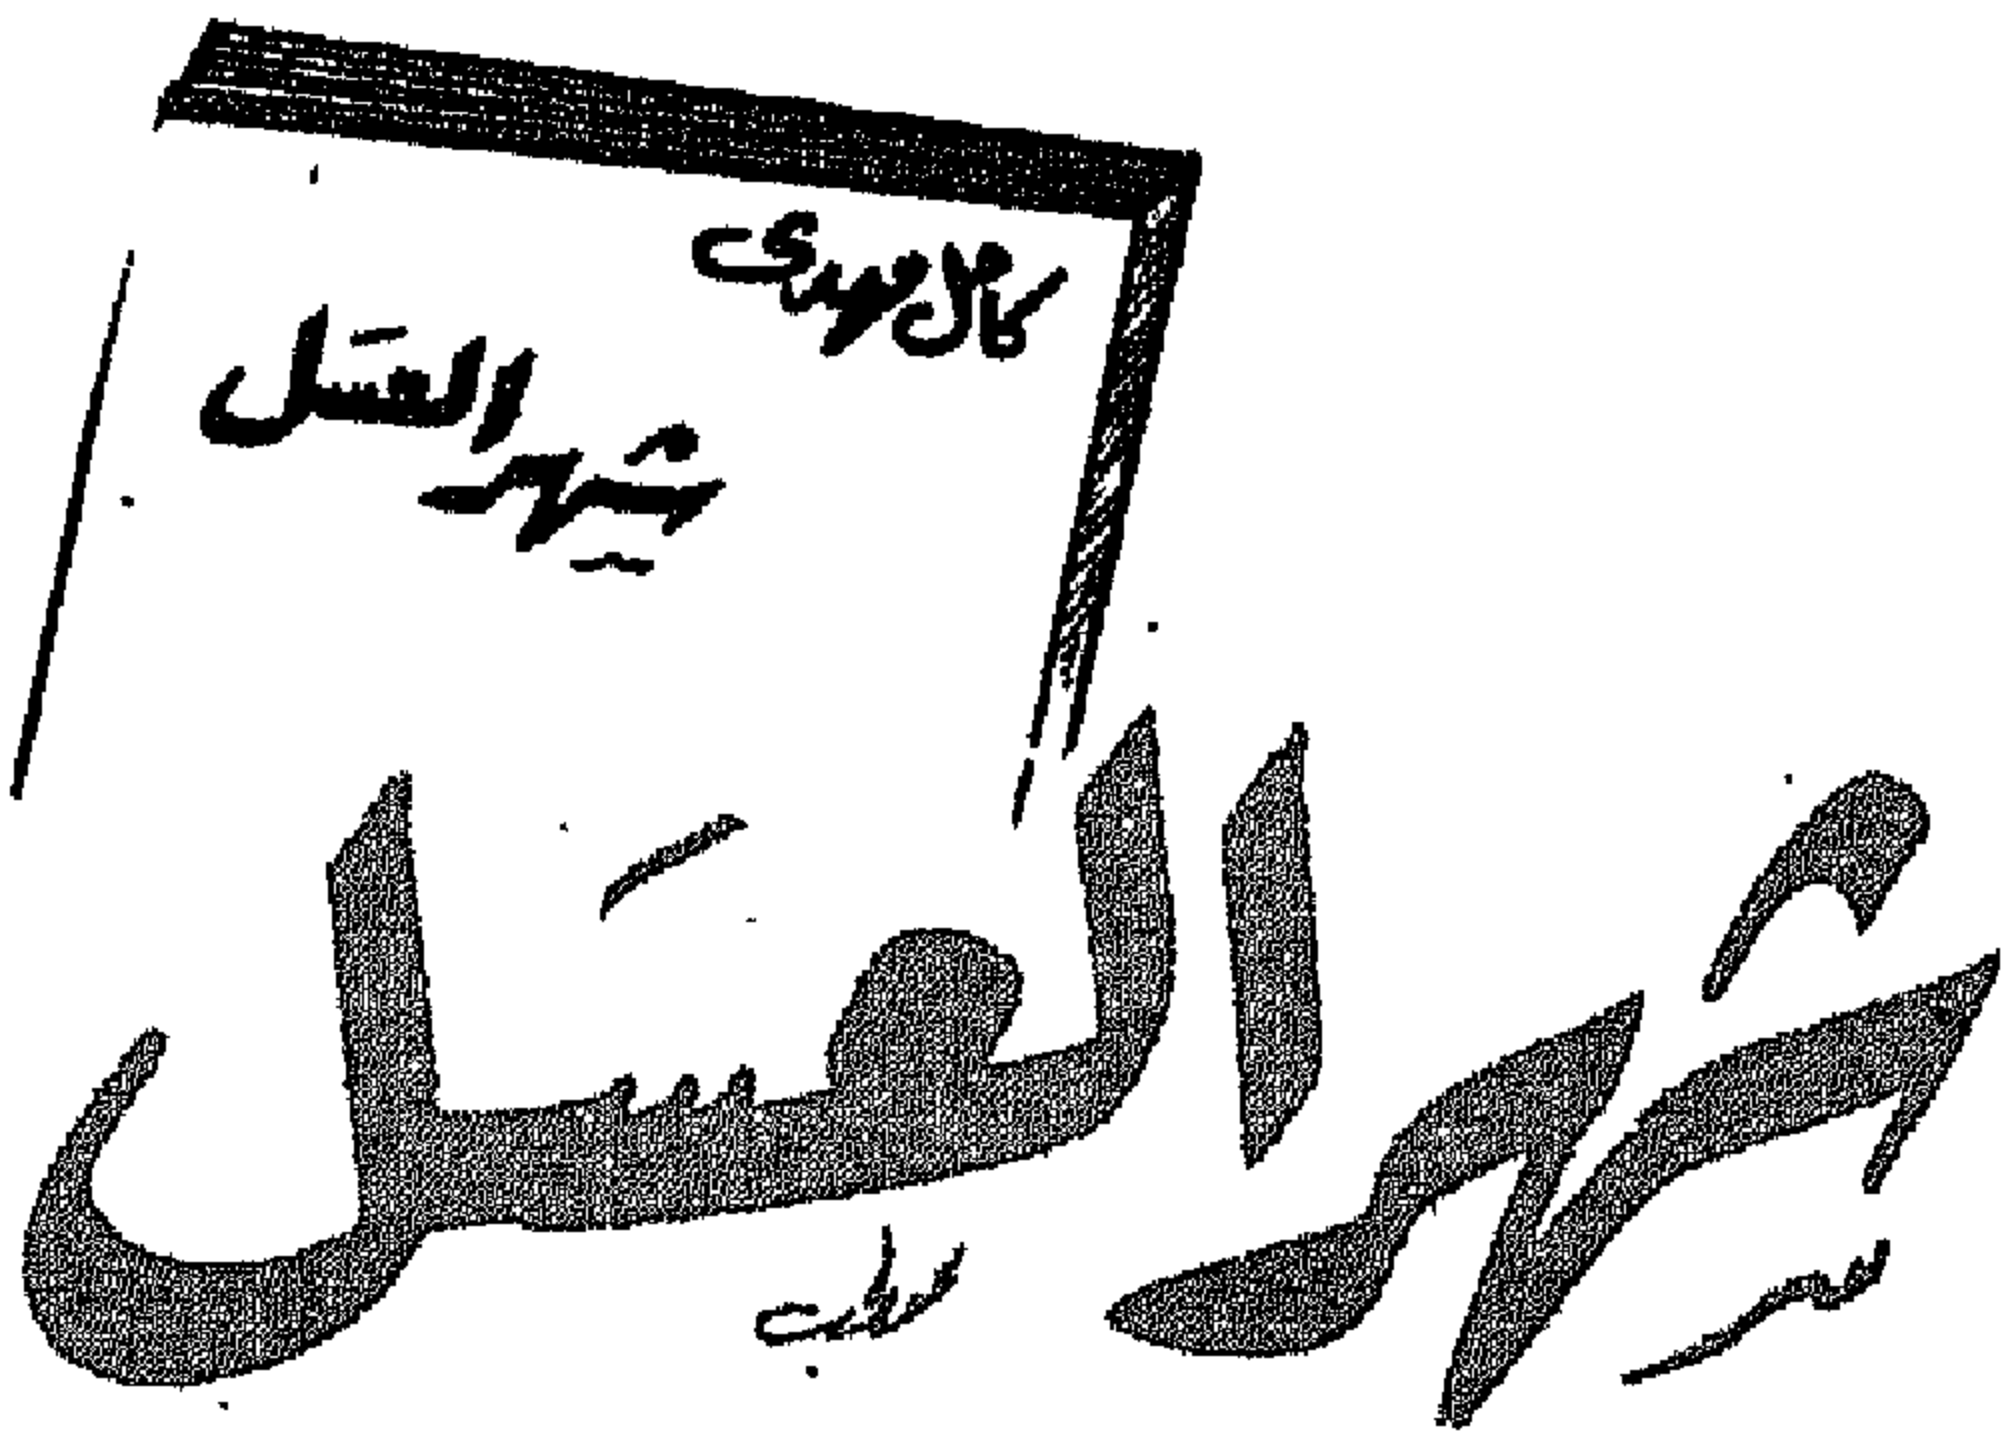 كامل مهدى
شهر العسَل
شهر العسَل